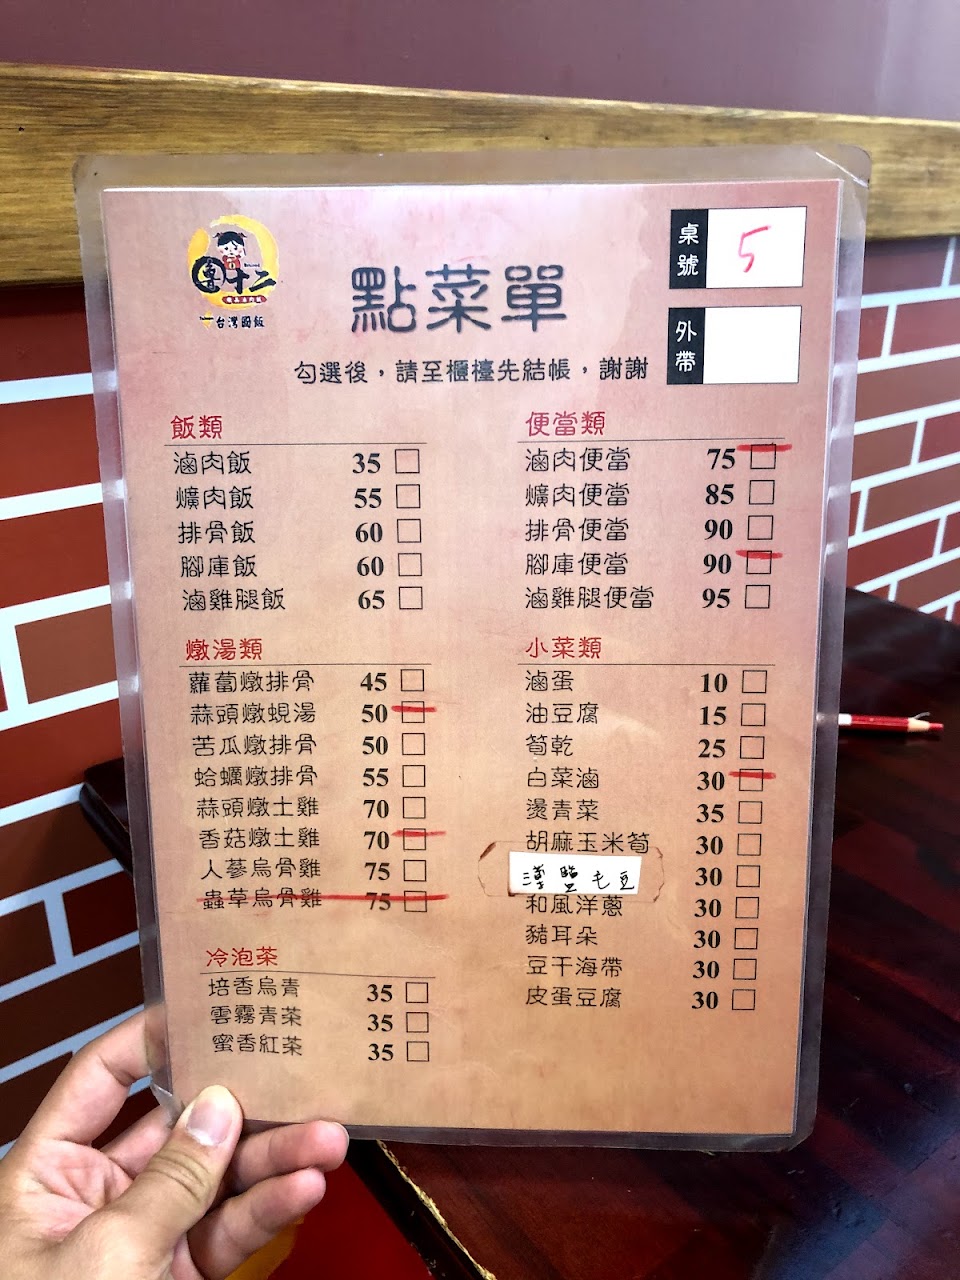 十二
台灣國飯
點菜單
勾選後，請至櫃檯先結帳，謝謝
桌號 5
外帶
飯類
滷肉飯 35
爌肉飯 55
排骨飯 60
腳庫飯 60
滷雞腿飯 65
燉湯類
蘿蔔燉排骨 45
蒜頭燉蜆湯 50
苦瓜燉排骨 50
蛤蠣燉排骨 55
蒜頭燉土雞 70
香菇燉土雞 70
人蔘烏骨雞 75
蟲草烏骨雞 75
冷泡茶
焙香烏青 35
雲霧青茶 35
蜜香紅茶 35
便當類
滷肉便當 75
爌肉便當 85
排骨便當 90
腳庫便當 90
滷雞腿便當 95
小菜類
滷蛋 10
油豆腐 15
筍乾 25
白菜滷 30
燙青菜 35
胡麻玉米筍 30
毛豆 30
和風洋蔥 30
豬耳朵 30
豆干海帶 30
皮蛋豆腐 30